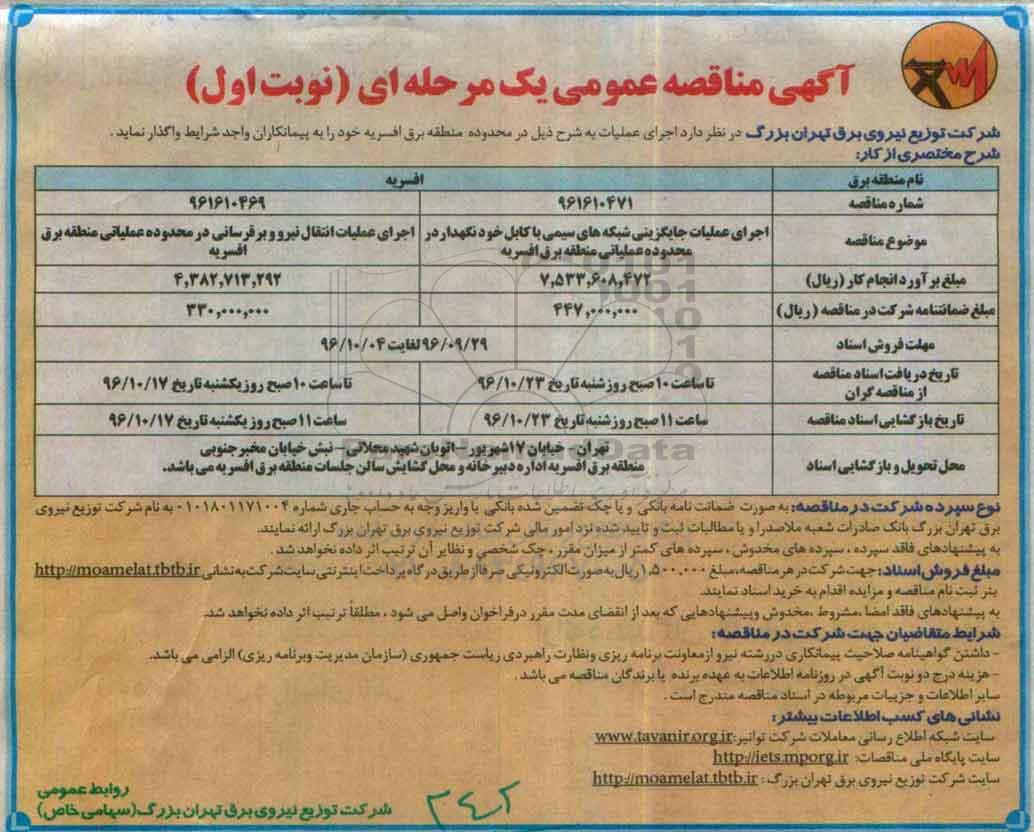 آگهی مناقصه عمومی یک مرحله ای (نوبت اول)
شرکت توزیع نیروی برق تهران بزرگ در نظر دارد اجرای عملیات به شرح ذیل در محدوده منطقه برق افسریه خود را به پیمانکاران واجد شرایط واگذار نماید.
شرح مختصری از کار:
نام منطقه برق افسریه
شماره مناقصه ۹۶۱۶۱۰۴۷۱ ۹۶۱۶۱۰۴۶۹
موضوع مناقصه اجرای عملیات جایگزینی شبکه های سیمی با کابل خودنگهدار در محدوده عملیاتی منطقه برق افسریه اجرای عملیات انتقال نیرو و برقرسانی در محدوده عملیاتی منطقه برق افسریه
مبلغ برآورد انجام کار (ریال) ۷,۵۳۳,۶۰۸,۴۷۲ ۴,۳۸۲,۷۱۳,۲۹۲
مبلغ ضمانتنامه شرکت در مناقصه (ریال) ۴۴۷,۰۰۰,۰۰۰ ۳۳۰,۰۰۰,۰۰۰
مهلت فروش اسناد ۹۶/۰۹/۲۹ لغایت ۹۶/۱۰/۰۴
تاریخ دریافت اسناد مناقصه از مناقصه گران تا ساعت ۱۰ صبح روز شنبه تاریخ ۹۶/۱۰/۲۳ تا ساعت ۱۰ صبح روز یکشنبه تاریخ ۹۶/۱۰/۱۷
تاریخ بازگشایی اسناد مناقصه ساعت ۱۱ صبح روز شنبه تاریخ ۹۶/۱۰/۲۳ ساعت ۱۱ صبح روز یکشنبه تاریخ ۹۶/۱۰/۱۷
محل تحویل و بازگشایی اسناد تهران - خیابان ۱۷ شهریور - اتوبان شهید محلاتی - نبش خیابان مخبر جنوبی
منطقه برق افسریه اداره دبیرخانه و محل گشایش سالن جلسات منطقه برق افسریه می باشد.
نوع سپرده شرکت در مناقصه: به صورت ضمانت نامه بانکی و یا چک تضمین شده بانکی یا واریز وجه به حساب جاری شماره ۰۱۰۱۸۰۱۱۷۱۰۰۴ به نام شرکت توزیع نیروی
برق تهران بزرگ بانک صادرات شعبه ملاصدرا و یا مطالبات ثبت و تایید شده نزد امور مالی شرکت توزیع نیروی برق تهران بزرگ ارائه نمایند.
به پیشنهادهای فاقد سپرده، سپرده های مخدوش، سپرده های کمتر از میزان مقرر، چک شخصی و نظایر آن ترتیب اثر داده نخواهد شد.
مبلغ فروش اسناد: جهت شرکت در هر مناقصه، مبلغ ۱,۵۰۰,۰۰۰ ریال به صورت الکترونیکی صرفا از طریق درگاه پرداخت اینترنتی سایت شرکت به نشانی http://moamelat.tbtb.ir
بنر ثبت نام مناقصه و مزایده اقدام به خرید اسناد نمایند.
به پیشنهادهای فاقد امضا، مشروط، مخدوش و پیشنهادهایی که بعد از انقضای مدت مقرر در فراخوان واصل می شود، مطلقاً ترتیب اثر داده نخواهد شد.
شرایط متقاضیان جهت شرکت در مناقصه:
- داشتن گواهینامه صلاحیت پیمانکاری در رشته نیرو از معاونت برنامه ریزی و نظارت راهبردی ریاست جمهوری (سازمان مدیریت و برنامه ریزی) الزامی می باشد.
- هزینه درج دو نوبت آگهی در روزنامه اطلاعات به عهده برنده یا برندگان مناقصه می باشد.
سایر اطلاعات و جزییات مربوطه در اسناد مناقصه مندرج است.
نشانی های کسب اطلاعات بیشتر:
سایت شبکه اطلاع رسانی معاملات شرکت توانیر: www.tavanir.org.ir
سایت پایگاه ملی مناقصات: http://iets.mporg.ir
سایت شرکت توزیع نیروی برق تهران بزرگ: http://moamelat.tbtb.ir
روابط عمومی
شرکت توزیع نیروی برق تهران بزرگ (سهامی خاص)